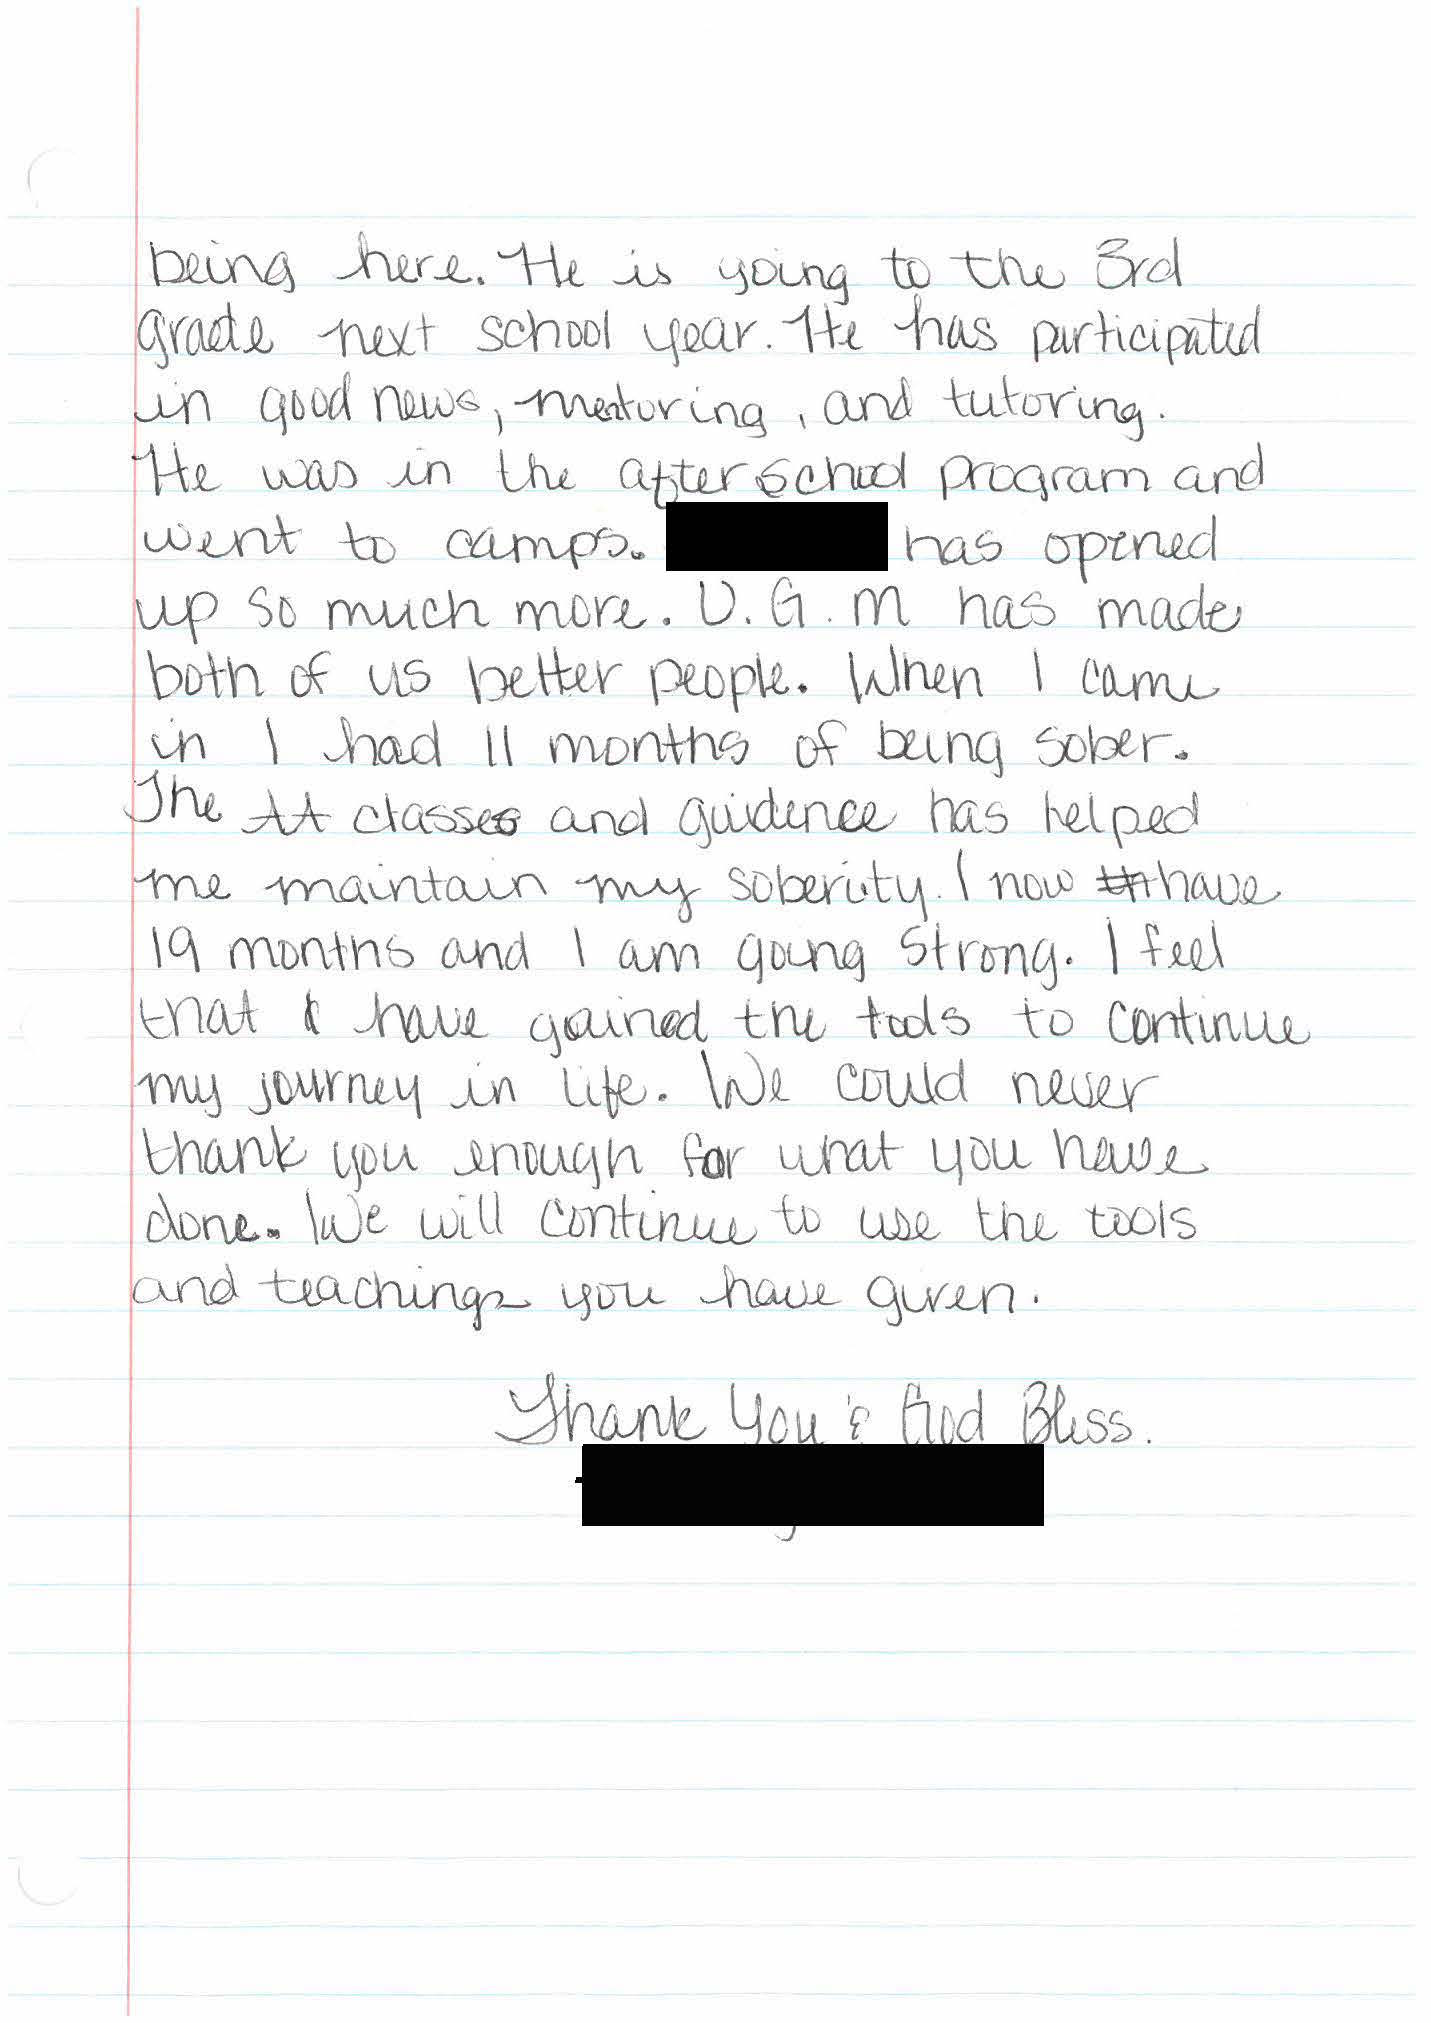 being here. He is going to the 3rd
grade next school year. He has participated
in good news, mentoring, and tutoring.
He was in the after school program and
went to camps. has opened
up so much more. U.G.M has made
both of us better people. When I came
in I had 11 months of being sober.
The AA classes and guidence has helped
me maintain my soberity. I now have
19 months and I am going strong. I feel
that I have gained the tools to continue
my journey in life. We could never
thank you enough for what you have
done. We will continue to use the tools
and teachings you have given.
Thank You & God Bless.